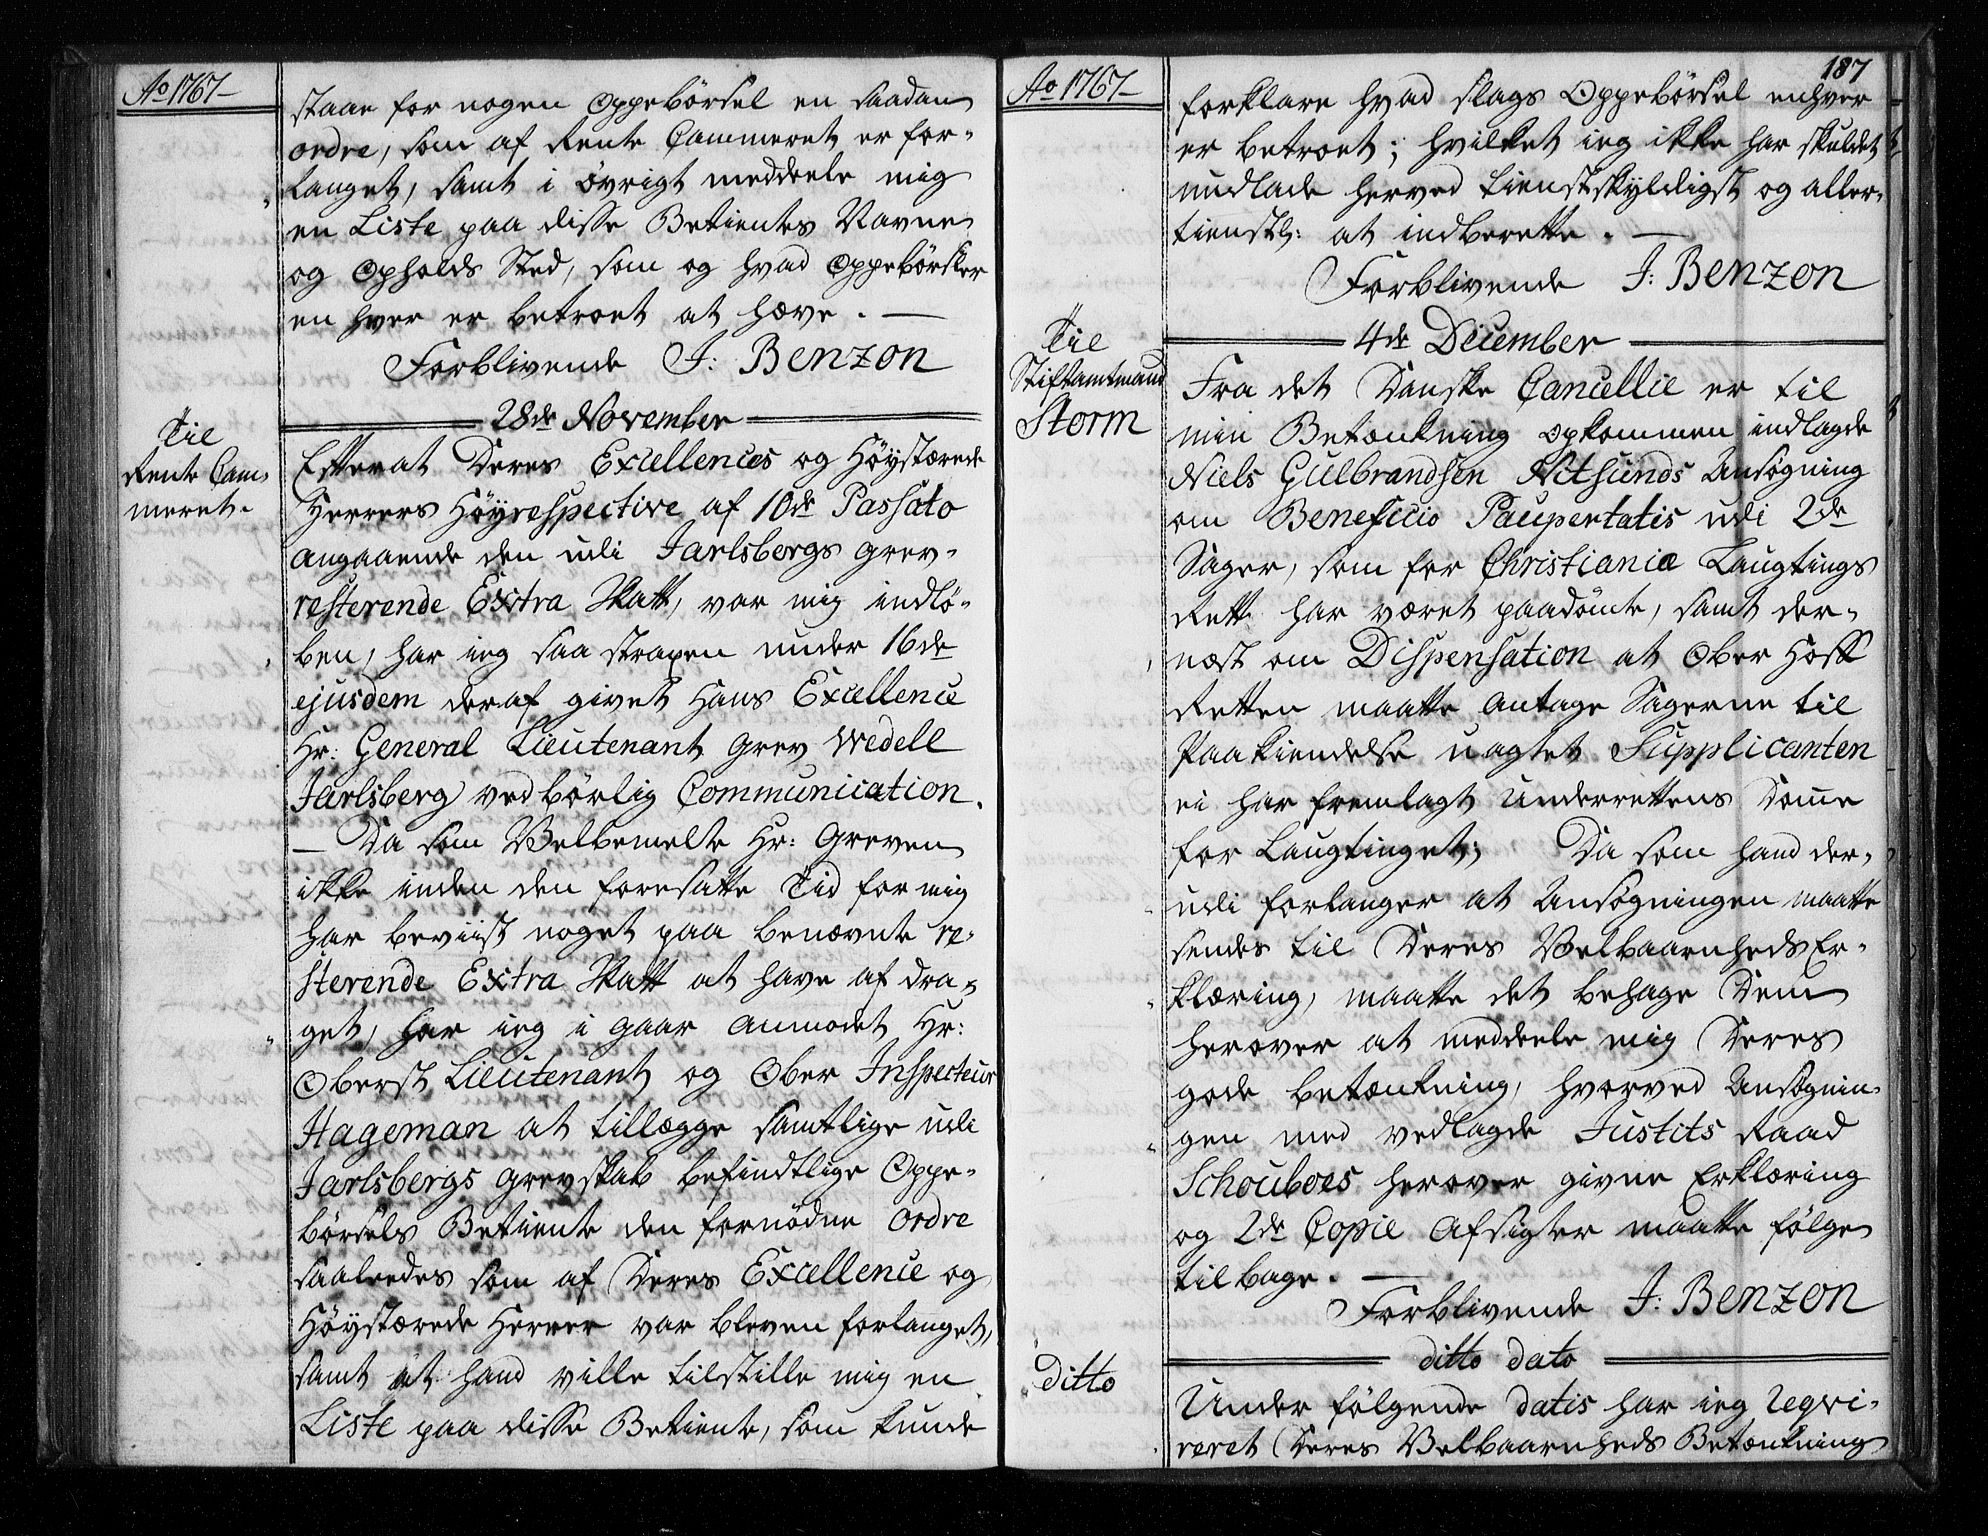 Ao 1767-
staae for nogen Oppebörsel en saadan
ordre, som af Rente Cammeret er for-
langet, samt i övrigt meddeele mig
en Liste paa disse Betientes Navne
og Opholds Sted, som og hvad Oppebörsler
en hver er betroet at hæve. —
Forblivende J: Benzon
28de November
Til
Rente Cam-
meret.
Efterat Deres Excellences og Höystærede
Herrers Höyrespective af 10de Passato
angaaende den udi Jarlsbergs Grev-
resterende Extra Skatt, var mig indlö-
ben, har ieg saa straxen under 16de
ejusdem deraf givet Hans Excellence
Hr: General Lieutenant Grev Wedell
Jarlsberg vedbörlig Communication.
— Da som Velbemelte Hr: Greven
ikke inden den foresatte Tid for mig
har beviist noget paa benævnte re-
sterende Extra Skatt at have af dra-
get, har ieg i gaar anmodet Hr:
Oberst Lieutenant og Ober Inspecteur
Hageman at tillægge samtlige udi
Jarlsbergs Grevskab befindtlige Oppe-
börsels Betiente den fornödne Ordre
saaleedes som af Deres Excellence og
Höystærede Herrer var bleven forlanget,
samt at hand ville tilstille mig en
Liste paa disse Betiente, som kunde
187
Ao 1767-
forklare hvad slags Oppebörsel enhver
er betroet; hvilket ieg ikke har skuldet
undlade herved tienstskyldigst og aller-
tienstl: at indberette. —
Forblivende J: Benzon
4de December
Til
Stiftamtmand
Storm
Fra det Danske Cancellie er til
min Betænkning opkommen indlagde
Niels Gulbrandsen Nitsunds Ansögning
om Beneficio Paupertatis udi 2de
Sager, som for Christiania Laugtings
Rett har været paadömte, samt der-
næst om Dispensation at Ober Hoff
Retten maatte antage Sagerne til
Paakiendelse uagtet Supplicanten
ei har fremlagt Underrettens Domme
for Laugtinget; Da som hand der-
udi forlanger at Ansögningen maatte
sendes til Deres Velbaarenheds Er-
klæring, maatte det behage Dem
herover at meddeele mig Deres
gode betænkning, hvorved Ansögnin-
gen med vedlagde Justits Raad
Schouboes herover givne Erklæring
og 2de Copie Afsigter maatte fölge
tilbage. —
Forblivende J: Benzon
ditto dato
ditto
Under fölgende datis har ieg reqvi-
reret Deres Velbaarenheds Betænkning